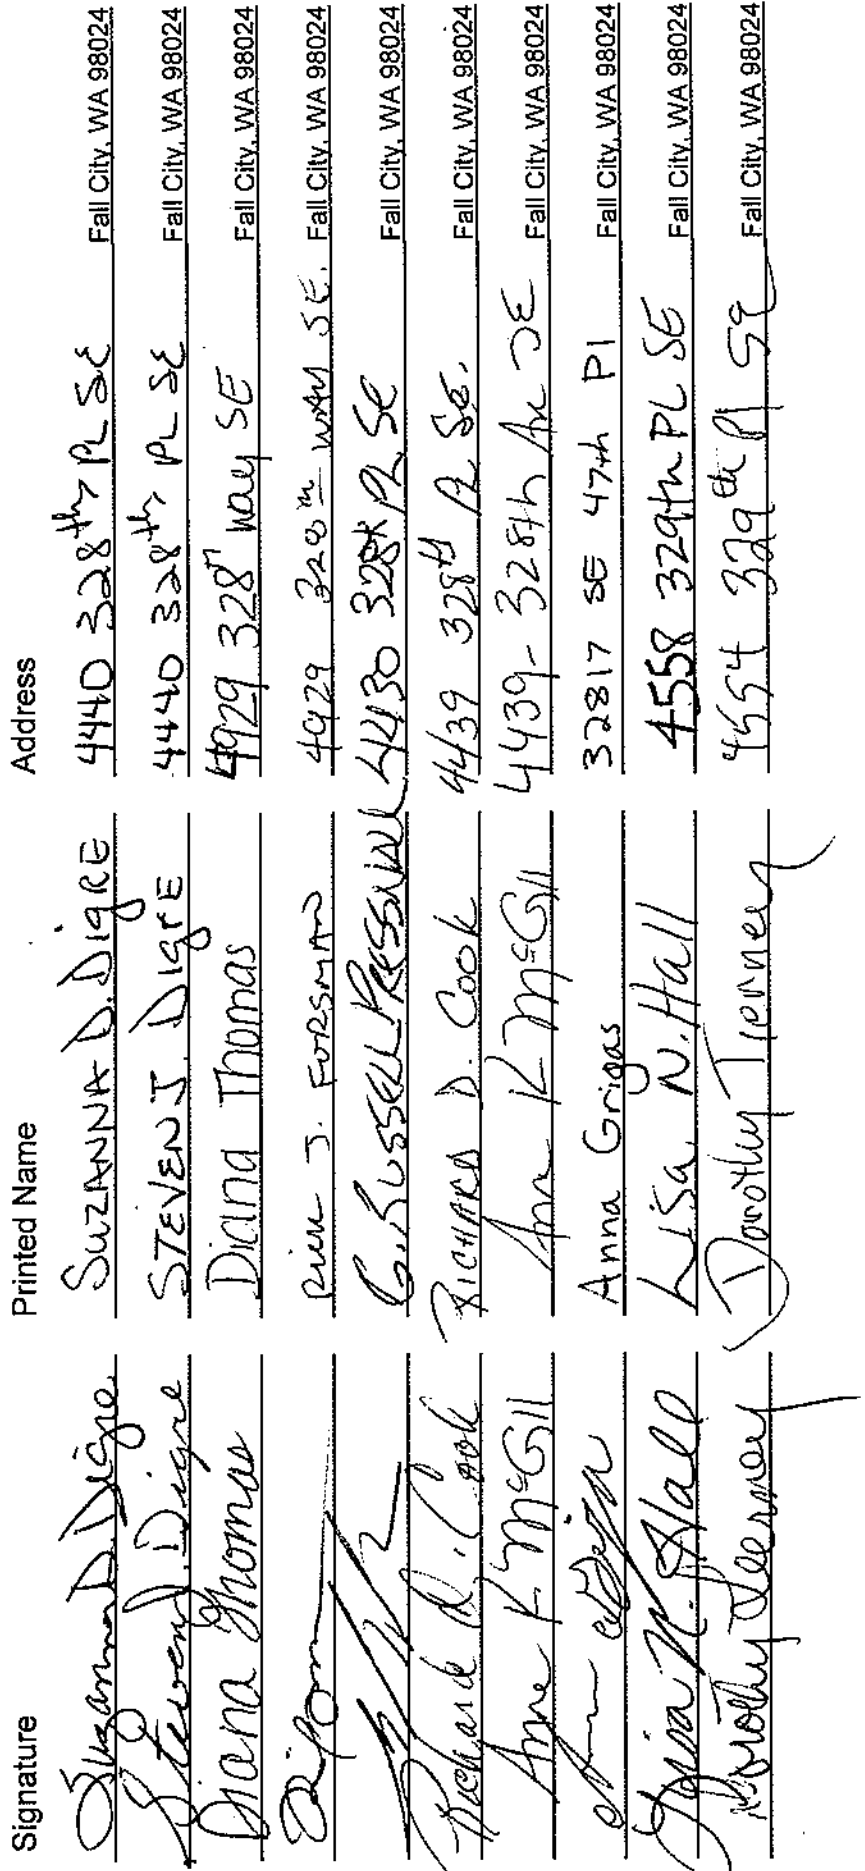 Signature Printed Name Address
Suzanna D. Digre SUZANNA D. DigRE 4440 328th PL SE Fall City, WA 98024
Steven J. Digre STEVEN J. DigrE 4440 328th PL SE Fall City, WA 98024
Diana Thomas Diana Thomas 4929 328th Way SE Fall City, WA 98024
J. FORSMAN 4929 328th WAY SE. Fall City, WA 98024
G. RUSSELL 4430 328th PL SE Fall City, WA 98024
Richard D. Cook RICHARD D. COOK 4439 328th PL SE. Fall City, WA 98024
Anne K McGill Ann K McGill 4439- 328th Ave SE Fall City, WA 98024
Anna Grigas 32817 SE 47th Pl Fall City, WA 98024
Lisa N. Hall Lisa N. Hall 4558 329th PL SE Fall City, WA 98024
Dorothy Tierney Dorothy Tierney 4554 329th Pl SE Fall City, WA 98024